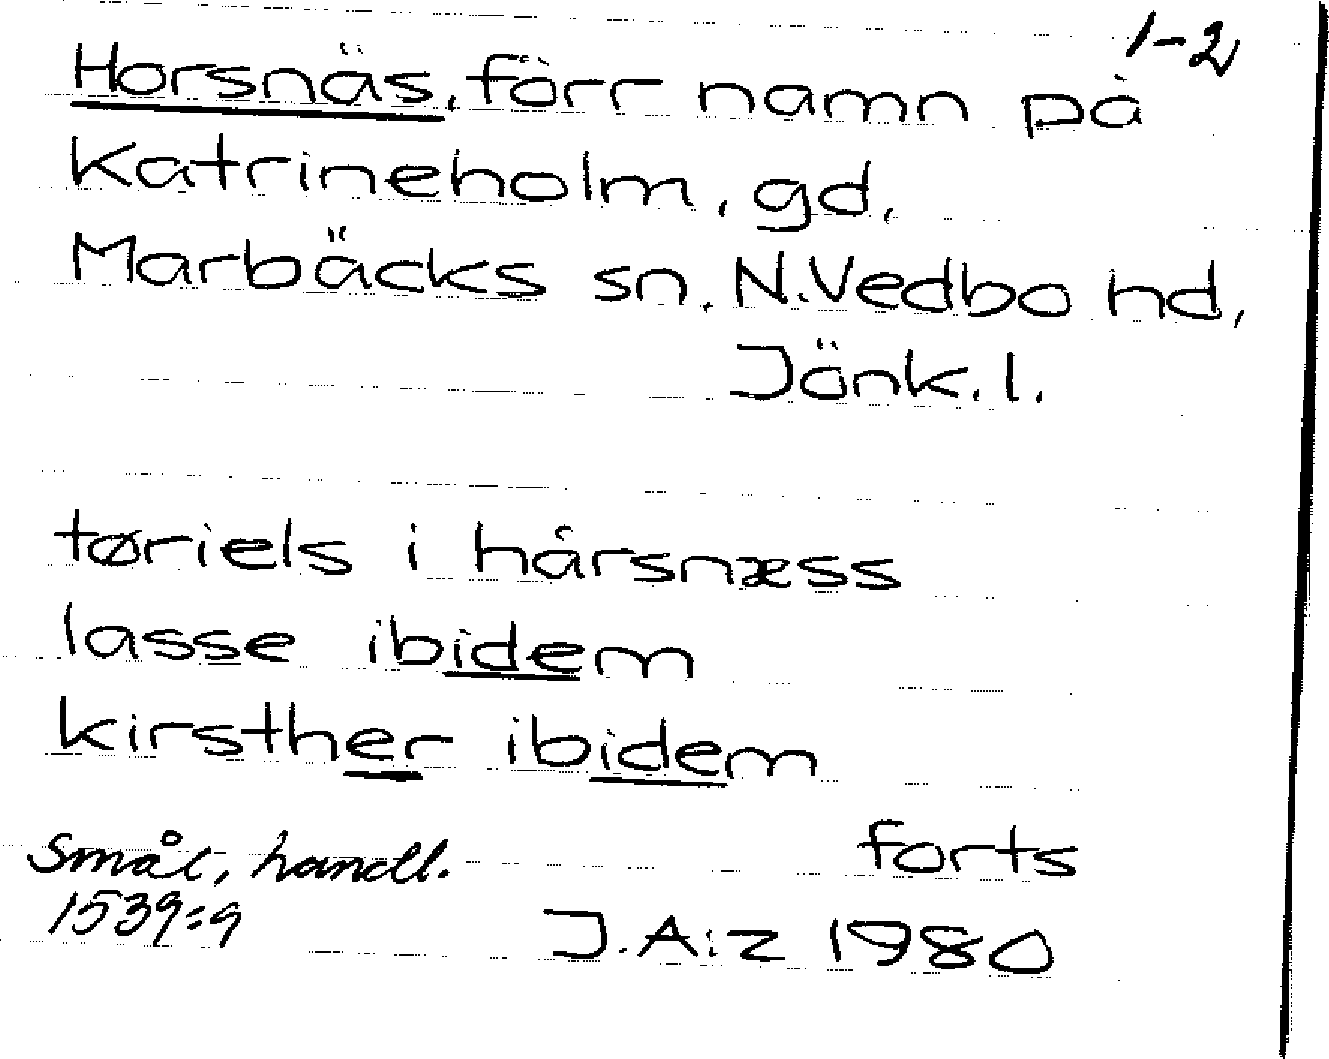 1-2
Horsnäs, förr namn på
Katrineholm, gd,
Marbäcks sn. N.Vedbo hd,
Jönk.l.
tøriels i hårsnæss
lasse ibidem
kirsther ibidem
Smål, handl. forts
1539:9 J.A:z 1980